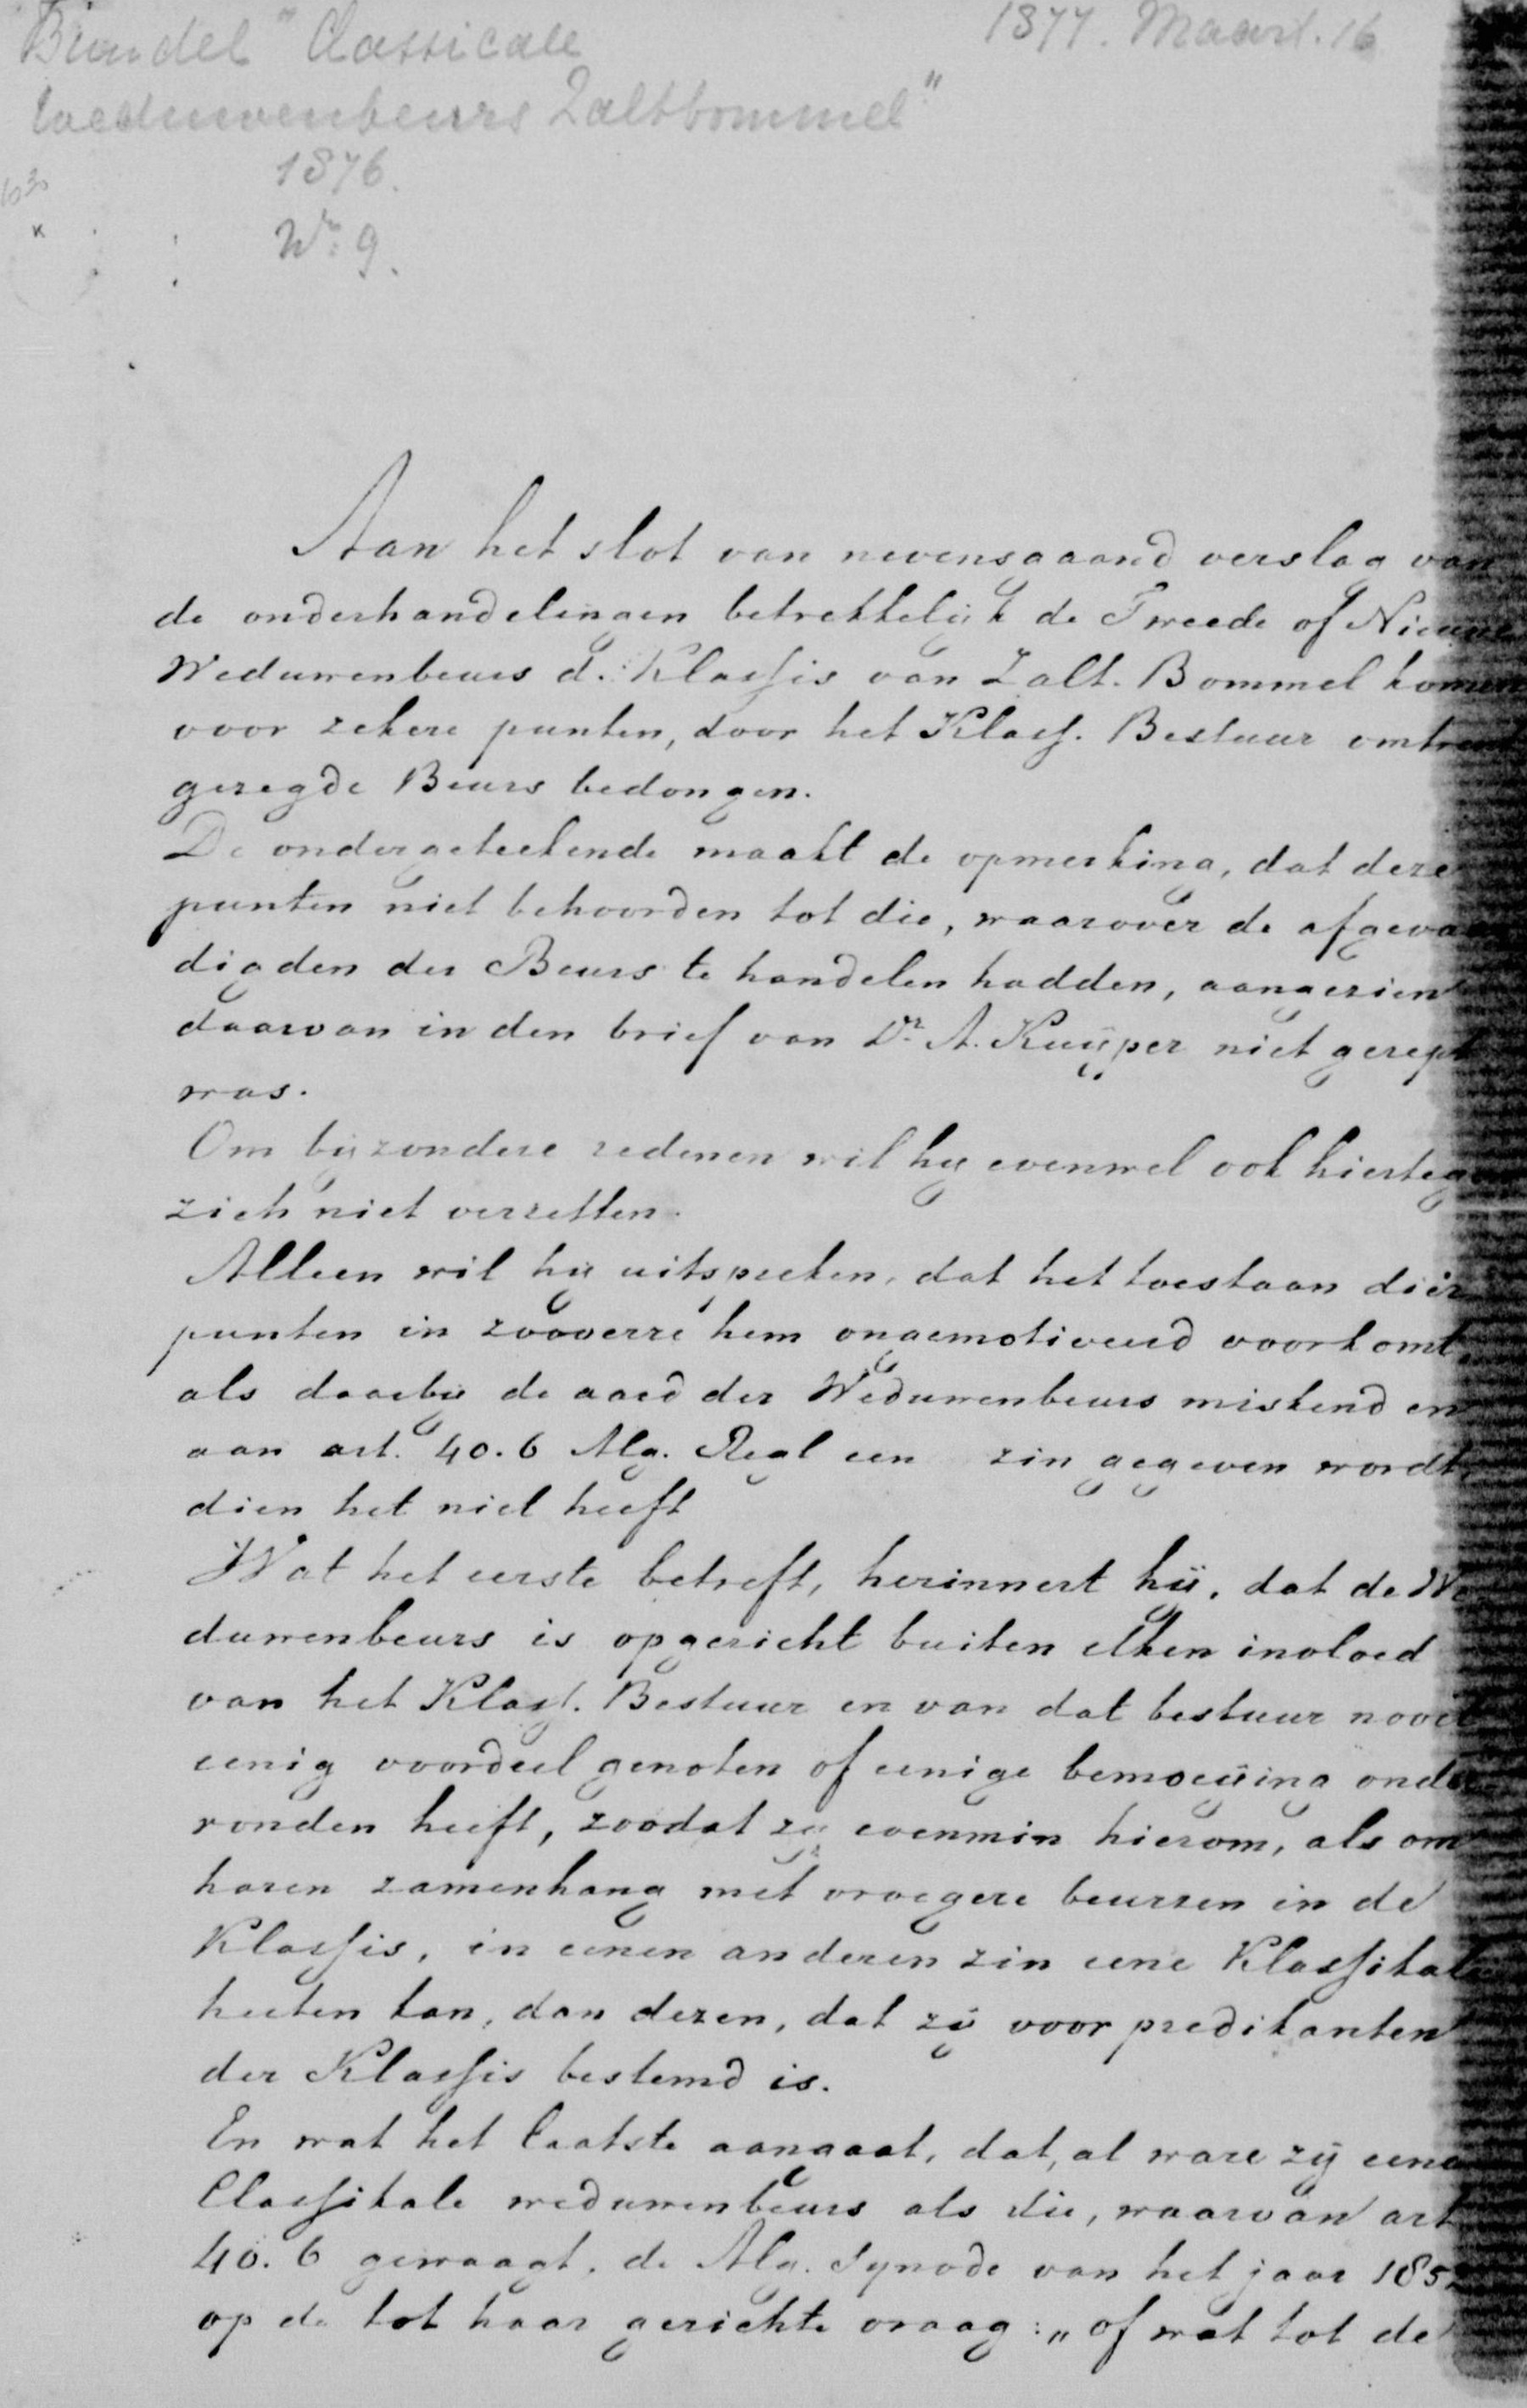 1877. Maart. 16
Bundel "Classicale
weduwenbeurs Zaltbommel"
1876.
No. 9.
Aan het slot van nevensgaand verslag van
de onderhandelingen betrekkelijk de Tweede of Nieuwe
Weduwenbeurs d. Klassis van Zalt-Bommel komen
voor zekere punten, door het Klass. Bestuur omtrent
gezegde Beurs bedongen.
De ondergeteekende maakt de opmerking, dat deze
punten niet behoorden tot die, waarover de afgevaar
digden der Beurs te handelen hadden, aangezien
daarvan in den brief van Dr. A. Kuijper niet gerept
was.
Om bijzondere redenen wil hij evenwel ook hierteg
zich niet verzetten.
Alleen wil hij uitspreken, dat het toestaan dier
punten in zooverre hem ongemotiveerd voorkomt,
als daarbij de aard der Weduwenbeurs miskend en
aan art. 40.6 Alg. Regl een zin gegeven wordt
dien het niet heeft
Wat het eerste betreft, herinnert hij, dat de We
duwenbeurs is opgericht buiten elken invloed
van het Klass. Bestuur en van dat bestuur nooit
eenig voordeel genoten of eenige bemoeijing onder
vonden heeft, zoodat zij evenmin hierom, als om
haren zamenhang met vroegere beurzen in de
Klassis, in eenen anderen zin eene Klassikale
heeten kan, dan dezen, dat zij voor predikanten
der Klassis bestemd is.
En wat het laatste aangaat, dat, al ware zij eene
Classikale weduwenbeurs als die, waarvan art
40.6 gewaagt, de Alg. Synode van het jaar 185
op de tot haar gerichte vraag: „of wat tot de